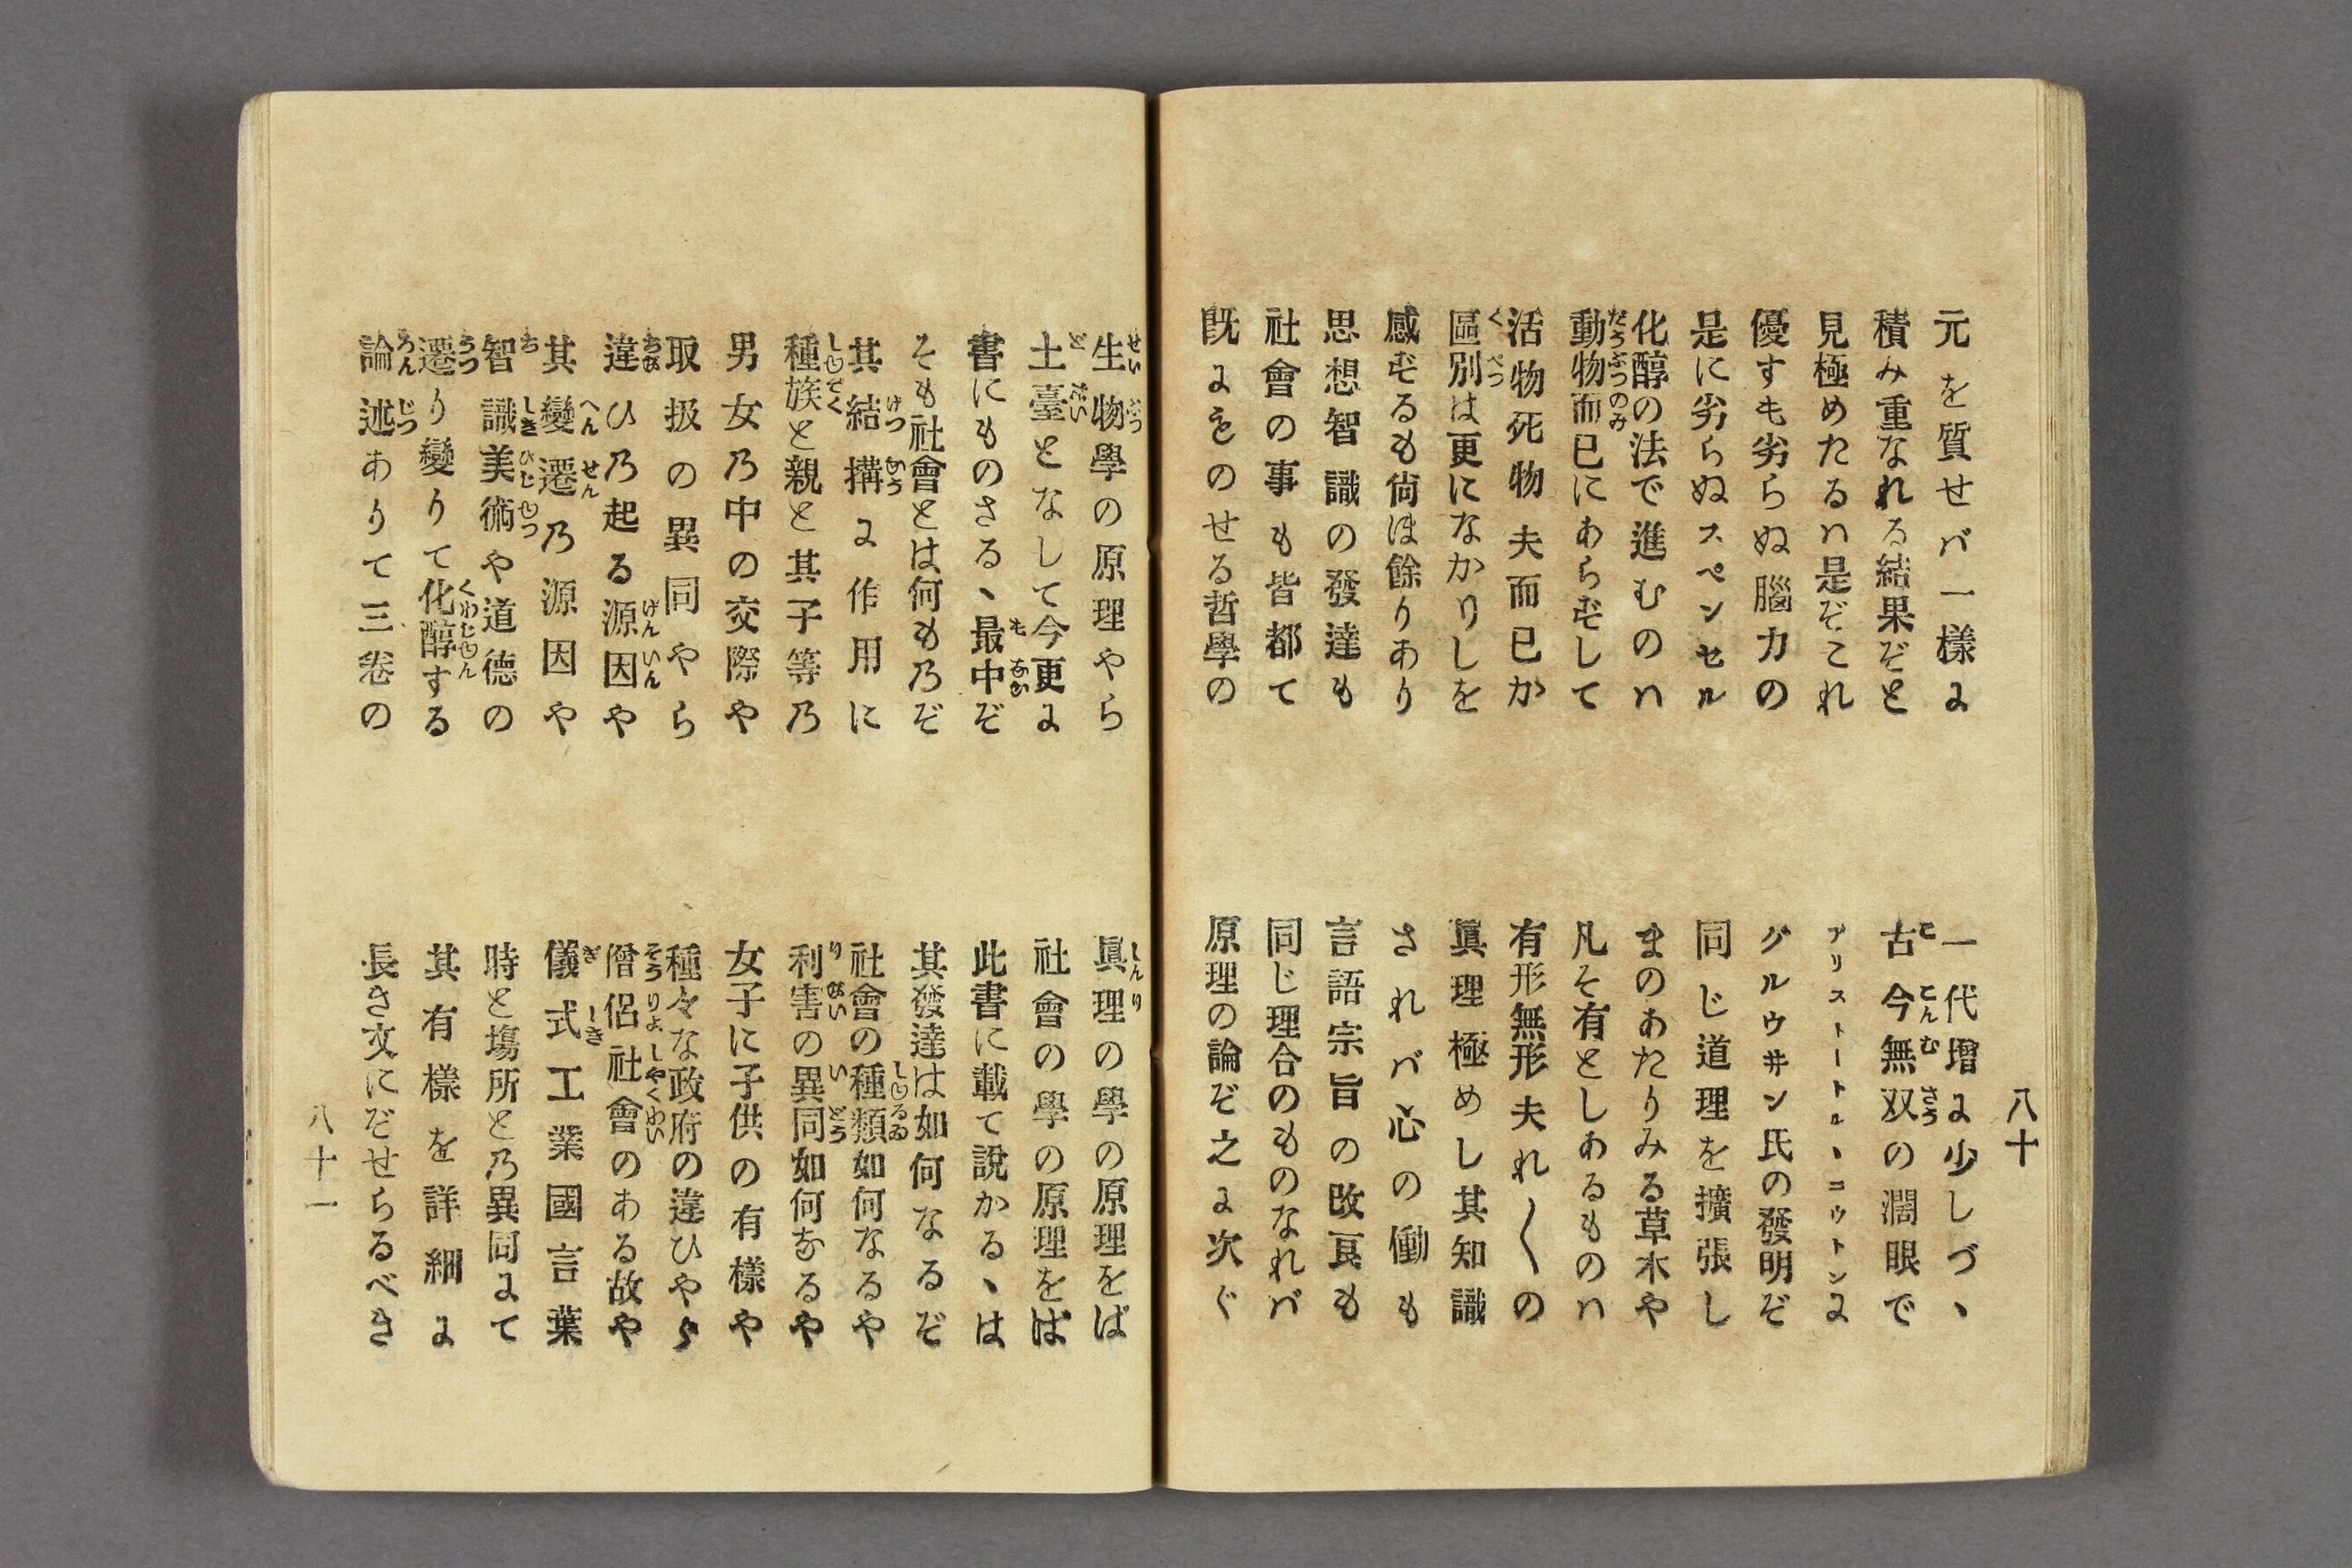 八十
元を質せバ一樣に
一代增に少しづヽ
積み重なれる結果ぞと
古今無双の濶眼で
見極めたるハ是ぞこれ
アリストートル、ニウトンに
優すも劣らぬ腦力の
ダルウ井ン氏の發明ぞ
是に劣らぬスペンセル
同じ道理を擴張し
化醇の法で進むのハ
まのあたりみる草木や
動物而已にあらずして
凡そ有としあるものハ
活物死物夫而已か
有形無形夫れ〱の
區別は更になかりしを
眞理極めし其知識
感ずるも尙ほ餘りあり
されバ心の働も
思想智識の發達も
言語宗旨の改良も
社會の事も皆都て
同じ理合のものなれバ
旣にものせる哲學の
原理の論ぞ之に次ぐ
生物學の原理やら
眞理の學の原理をば
土臺となして今更に
社會の學の原理をば
書にものさるヽ最中ぞ
此書に載て說かるヽは
そも社會とは何ものぞ
其發達は如何なるぞ
其結搆に作用に
社會の種類如何なるや
種族と親と其子等の
利害の異同如何なるや
男女の中の交際や
女子に子供の有樣や
取扱の異同やら
種々な政府の違ひやら
違ひの起る源因や
僧侶社會のある故や
其變遷の源因や
儀式工業國言葉
智識美術や道德の
時と塲所との異同にて
遷り變りて化醇する
其有樣を詳細に
論述ありて三卷の
長き文にぞせらるべき
八十一